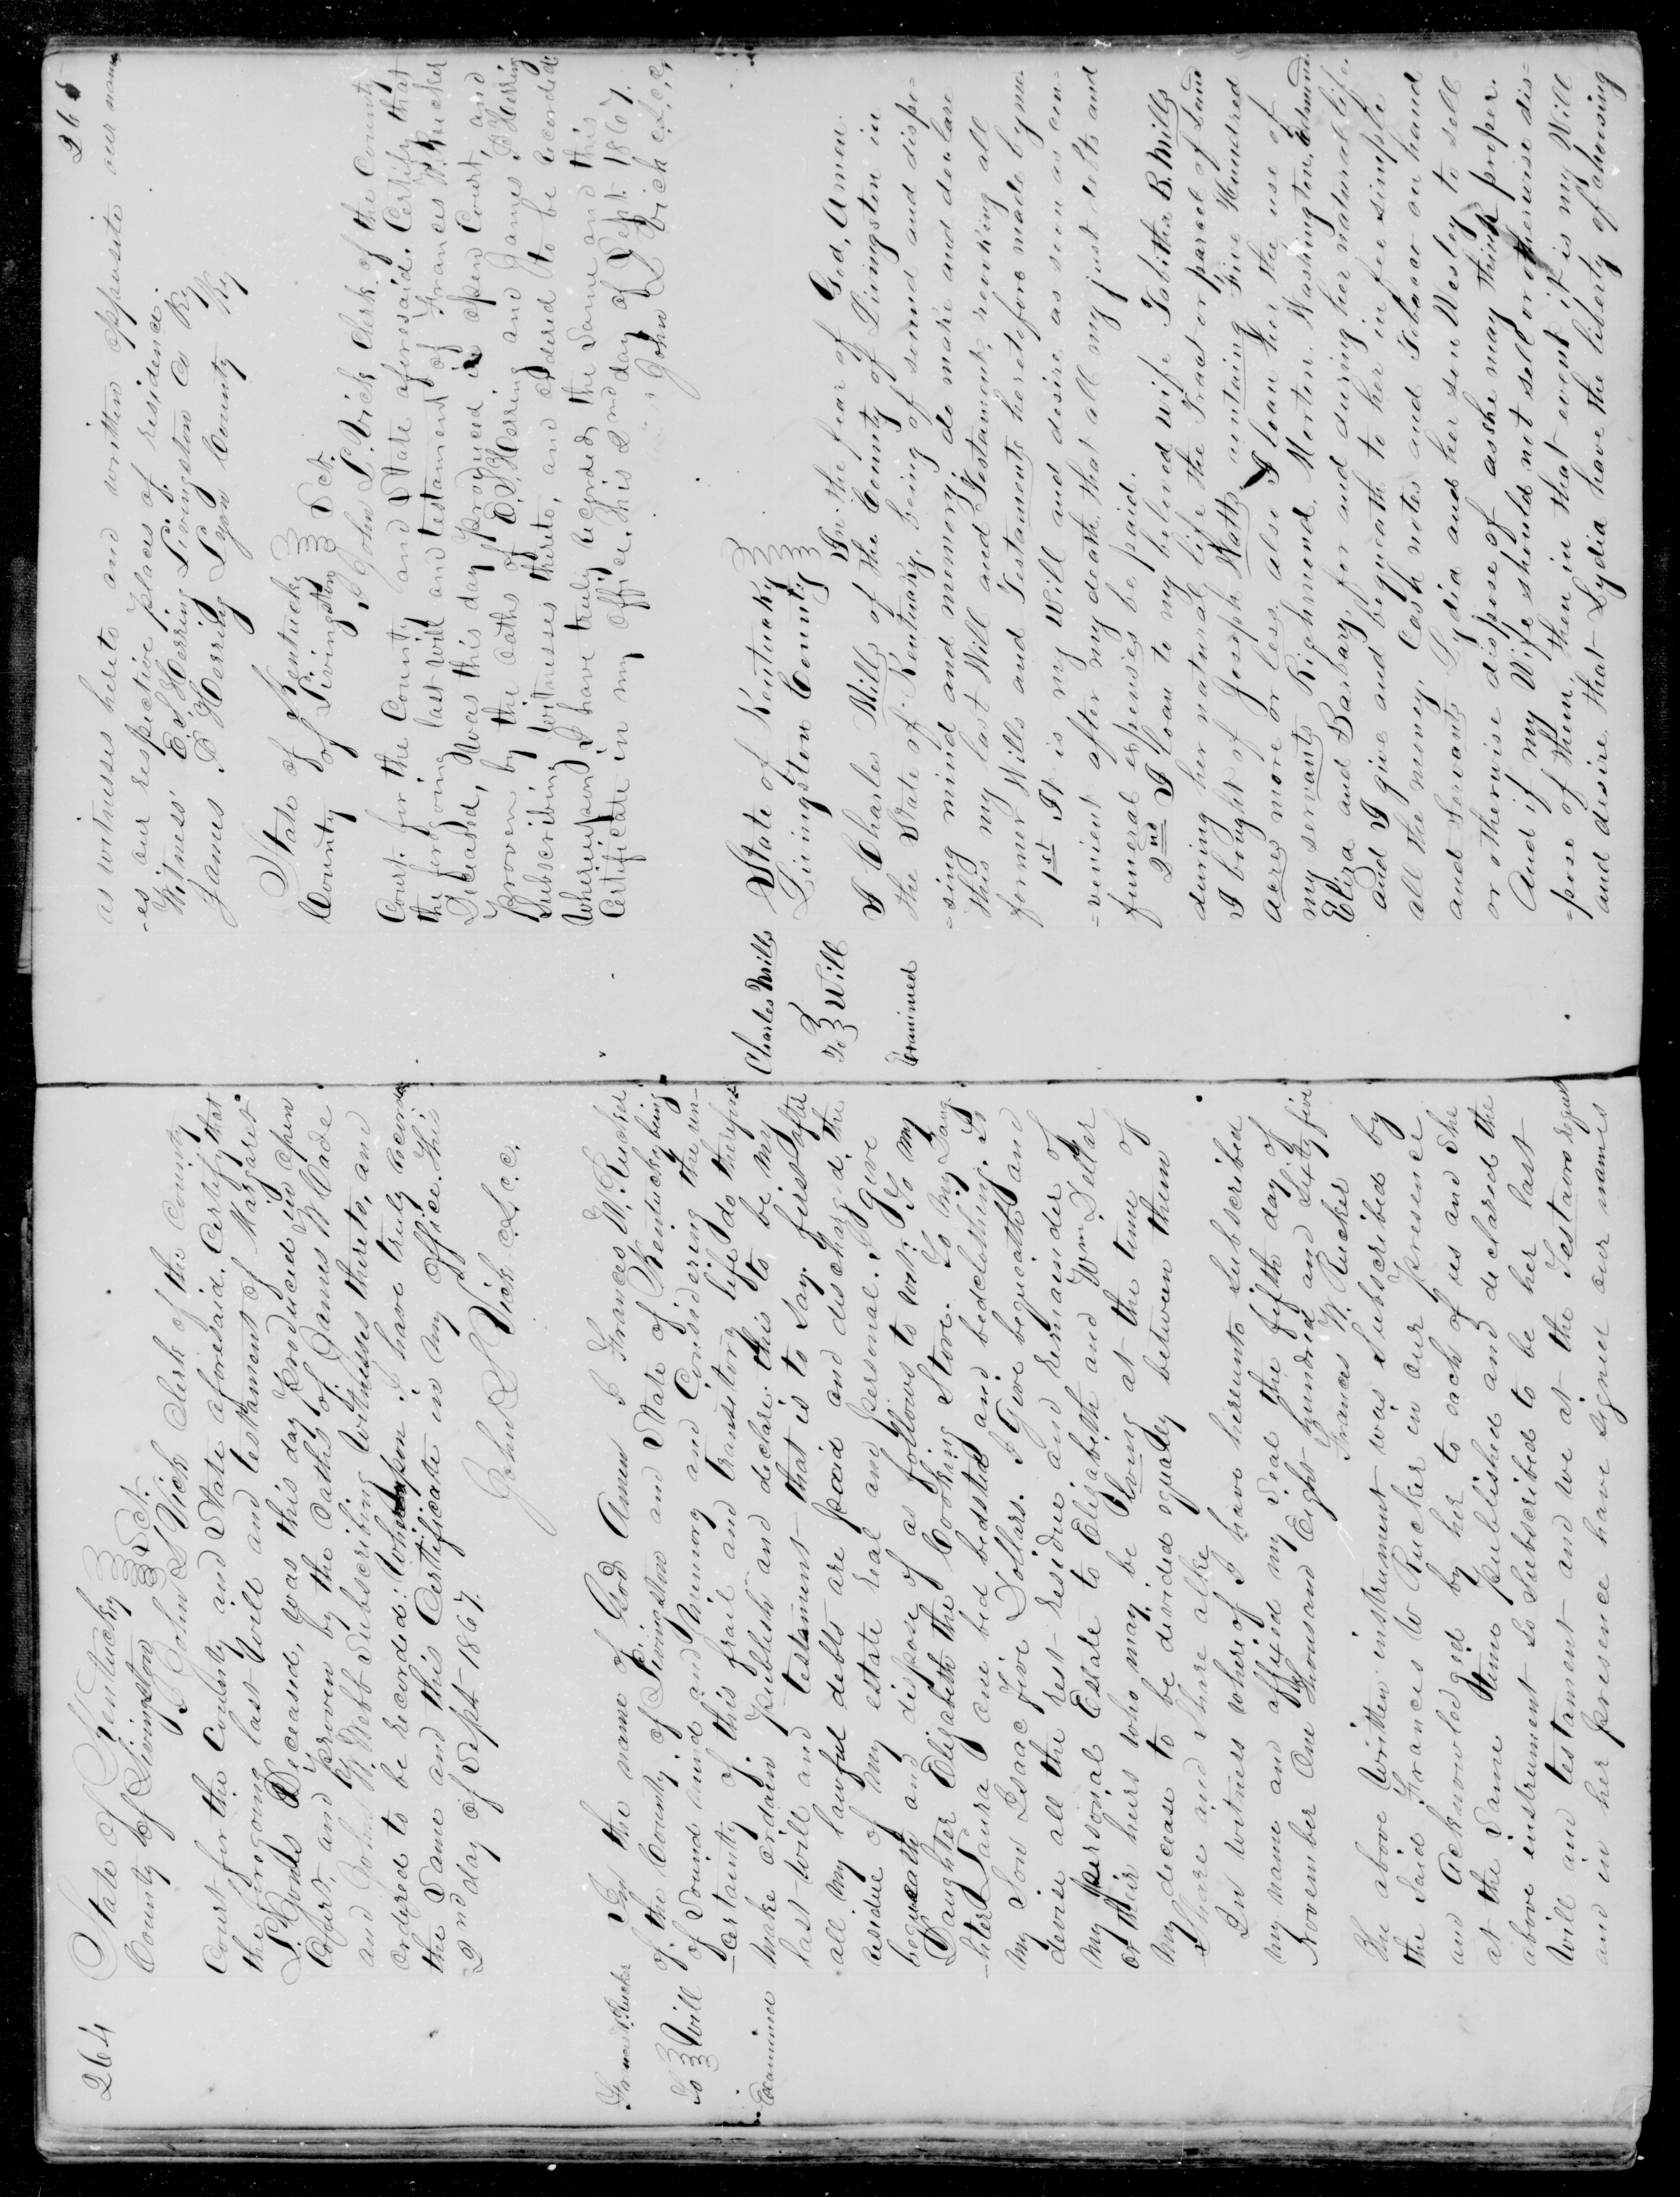 264
State of Kentucky
County of Livingston Sct.
I John L Vick Clerk of the County
Court for the County and State aforesaid. Certify that
the foregoing last Will and testament of Margaret
L. Deceased, was this day produced in open
Court, and proven by the oaths of James W Wade
and John W. Webb Subscribing Witnesses thereto, and
ordered to be recorded: Whereupon I have truly recorded
the Same and this Certificate in my office. This
2nd day of Sept 1867.
John L Vick C.L.C.C.
Frances W. Rucker
To Will
Examined
In the name of God Amen I Frances W. Rucker
of the County of Livingston and State of Kentucky being
of Sound mind and Memory and Considering the un-
-certainty of this frail and transitory life do therefore
make ordain publish and declare this to be my
last will and testament that is to say. first after
all my lawful debts are paid and discharged, the
residue of my estate real and personal. I Give
bequeath and dispose of as follows to wit: To my
Daughter Elizabeth the Cooking Stove. To my Daug-
-hter Laura one bed bedstid and bedclothing. To
my Son Isaac five Dollars. I Give bequeath and
devise all the rest residue and remainder of
my personal Estate to Elizabeth and Wm Dellar
or their heirs who may be living at the time of
my decease to be devided equaley between them
Share and Share alike
In witness whereof I have hereunto subscribed
my name and affixed my Seal the fifth day of
November One thousand Eight hundred and Sixty five
Frances W. Rucker
The above written instrument was Subscribed by
the Said Frances W Rucker in our presence
and acknowledged by her to each of us and She
at the Same time published and declared the
above instrument So Subscribed to be her last
Will and testament and we at the Testators request
and in her presence have signed our names
265
as witnesses hereto and written opposite our nam
-es our respective places of residence.
Witness' E.S. Herring Livingston Co Ky
James B Herring Lyon County Ky
State of Kentucky
County of Livingston Sct.
I John L. Vick Clerk of the County
Court for the County and State aforesaid. Certify that
the foregoing last will and testament of Frances W Rucker
Deceased, Was this day produced in open Court, and
Proven by the oaths of E.S. Herring and James B Herring
Subscribing witnesses thereto, and ordered to be recorded
Whereupon I have truly recorded the Same and this
Certificate in my office. This 2nd day of Sept 1867.
John L Vick C.L.C.C.
Charles Mills
To Will
Examined
State of Kentucky
Livingston County
In the fear of God, Amen.
I Charles Mills of the County of Livingston in
the State of Kentucky, being of sound and dispo=
=sing mind and memory, do make and declare
this my last Will and Testament, revoking all
former Wills and Testaments heretofore made by me
1st It is my Will and desire as soon as con=
=venient after my death, that all my just debts and
funeral expenses be paid.
2nd I loan to my beloved wife Tabitha B. Mills
during her natural life the Tract or parcel of Land
I bought of Joseph Watts, containing Five Hundred
acres more or less, also I loan her the use of
my servants Richmond, Morton, Washington, Edmund,
Eliza and Barbary, for and during her natural life,
and I give and bequeath to her in fee simple
all the money, Cash notes and Tobacco on hand
and Servants Lydia and her son Wesley to sell
or otherwise dispose of as she may think proper.
And if my Wife should not sell or otherwise dis=
=pose of them, then in that event it is my Will
and desire that Lydia have the liberty of choosing